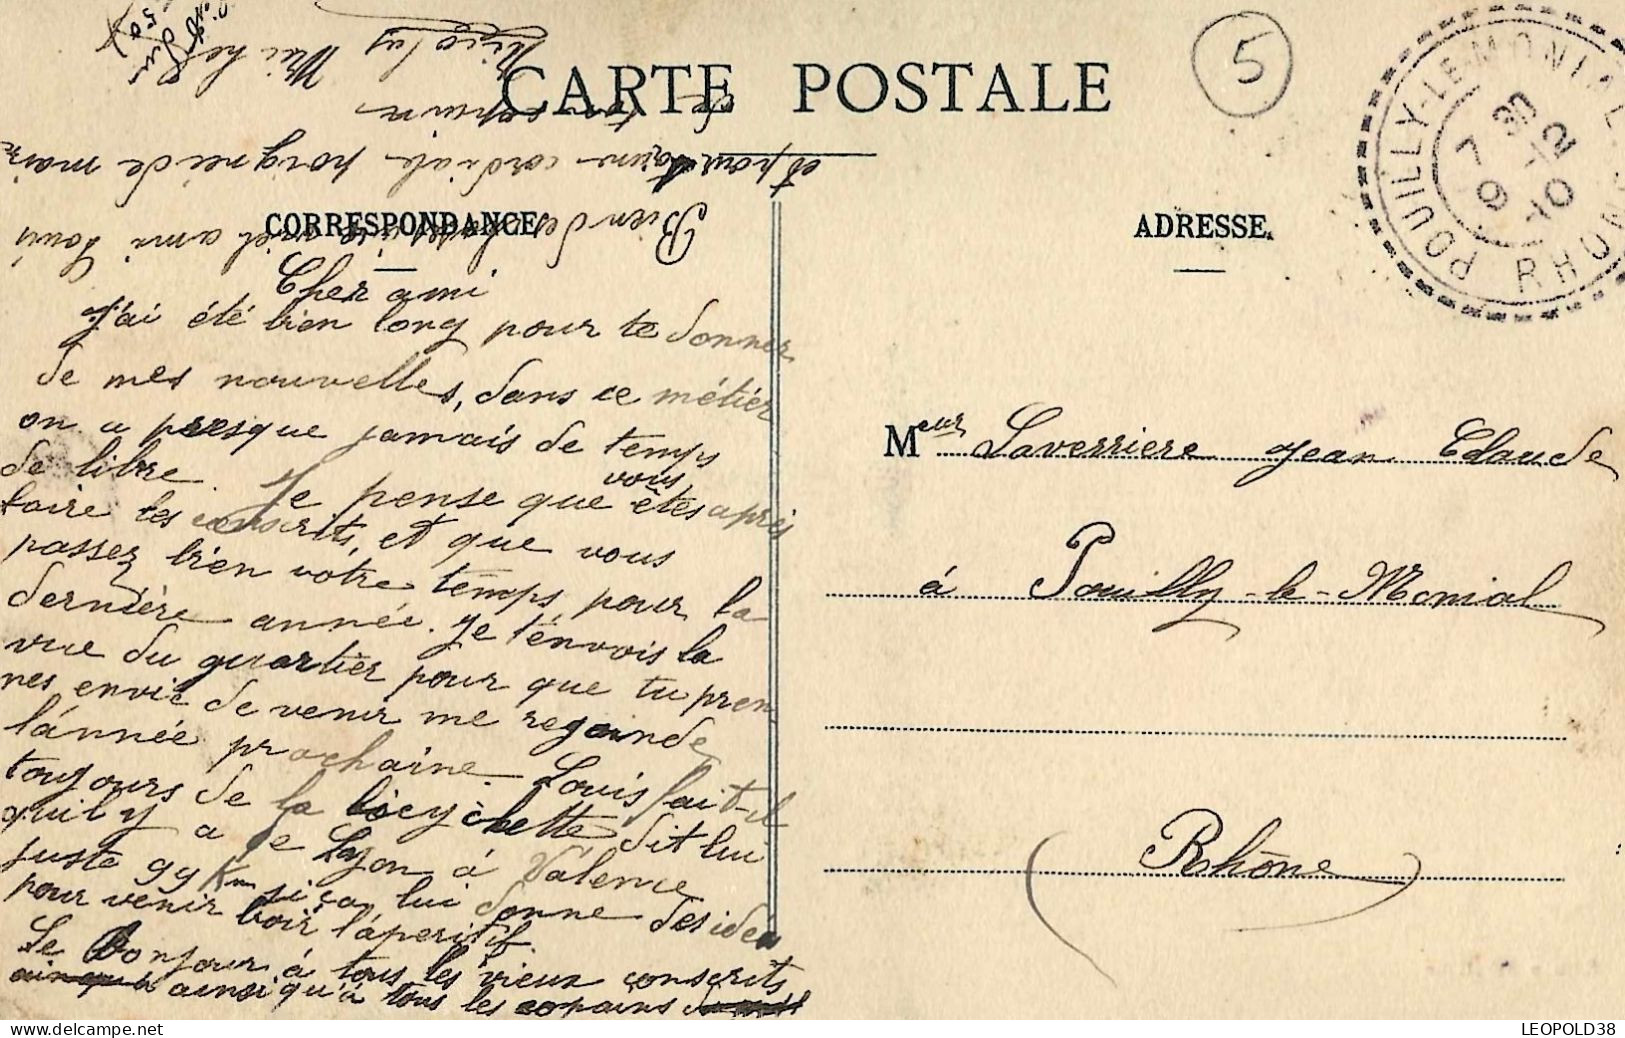 CARTE POSTALE
5
POUILLY-LE-MONIAL
RHONE
7 30
9 -12
10
CORRESPONDANCE
ADRESSE
Cher ami
J'ai été bien long pour te donner
de mes nouvelles, dans ce métier
on a presque jamais de temps
de libre. Je pense que vous êtes après
faire les conscrits, et que vous
passez bien votre temps, pour la
dernière année. Je t'énvois la
vue du quartier pour que tu pren
nes envie de venir me regoinde
l'ánnée prochaine. Louis fait-il
toujours de la bicyclette, dit lui
quil y a de Lyon á Válence
juste 99 Km si ça lui donne des idées
pour venir boir l'áperitif.
Le Bonjour á tous les vieux conscrits
ainsi qu'á tous les copains
Bien des choses à viel ami Louis
et pour toi une cordiale poignée de main
de ton copain
Nicolas Michel
Meur Laverriere Jean Claude
á Pouilly-le-Monial
Rhône
LEOPOLD38